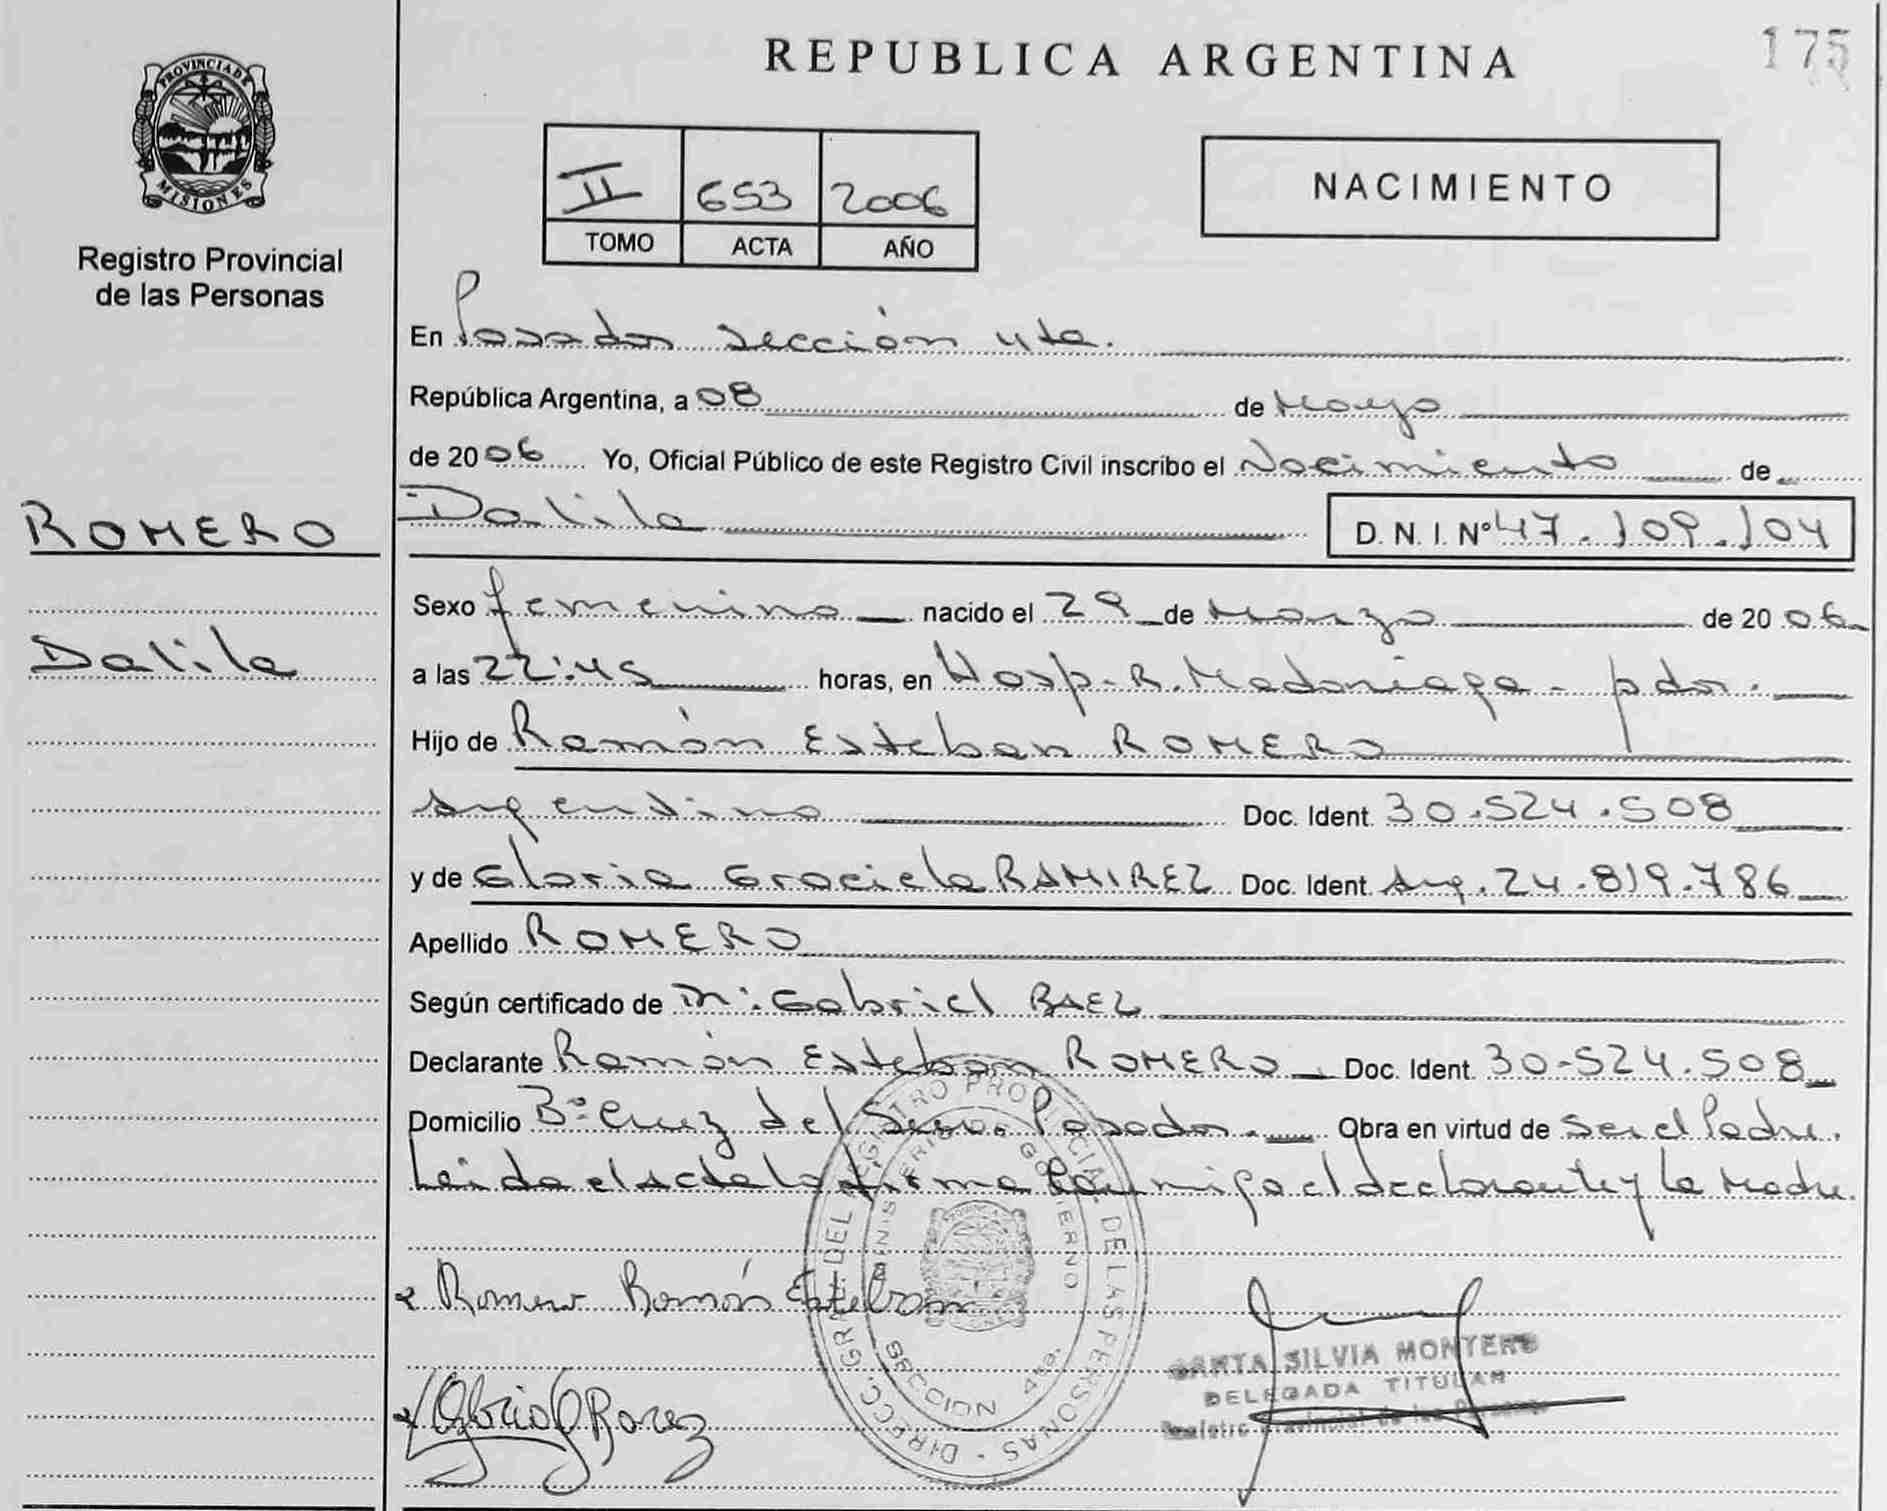 175
REPUBLICA ARGENTINA
PROVINCIA DE MISIONES
Registro Provincial
de las Personas
II 653 2006
TOMO ACTA AÑO
NACIMIENTO
En Posadas sección 4ta.
República Argentina, a 08 de Mayo
de 2006 Yo, Oficial Público de este Registro Civil inscribo el Nacimiento de
ROMERO
Dalila
Dalila D. N. I. Nº 47.109.104
Sexo femenino nacido el 29 de Marzo de 2006
a las 22:45 horas, en Hosp. R. Madariaga - pdas.
Hijo de Ramón Esteban ROMERO
Argentino Doc. Ident. 30.524.508
y de Gloria Graciela RAMIREZ Doc. Ident. Arg. 24.819.786
Apellido ROMERO
Según certificado de Gabriel BAEZ
Declarante Ramón Esteban ROMERO Doc. Ident. 30.524.508
Domicilio Bº Cruz del Posadas. Obra en virtud de ser el Padre.
Leida el Acta la firma el declarante y la Madre.
Romero Ramón Esteban
DIRECC. GRAL. DEL REGISTRO PROVINCIAL DE LAS PERSONAS
MINISTERIO DE GOBIERNO
SECCION 4ta.
SILVIA MONTERO
DELEGADA TITULAR
Registro Provincial de las Personas